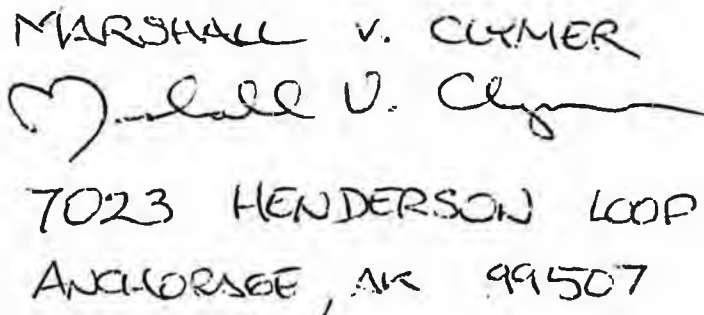 MARSHALL V. CLYMER
Marshall V. Clymer
7023 HENDERSON LOOP
ANCHORAGE, AK 99507